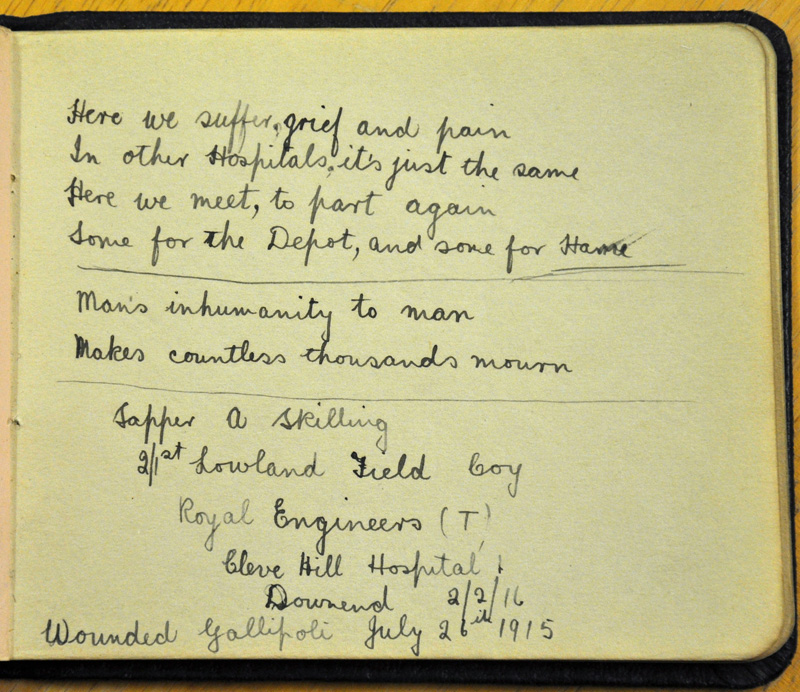 Here we suffer, grief and pain
In other Hospitals, it's just the same
Here we meet, to part again
Some for the Depot, and some for Hame
Man's inhumanity to man
Makes countless thousands mourn
Sapper A Skilling
2/1st Lowland Field Coy
Royal Engineers (T)
Cleve Hill Hospital
Downend 2/2/16
Wounded Gallipoli July 26th 1915